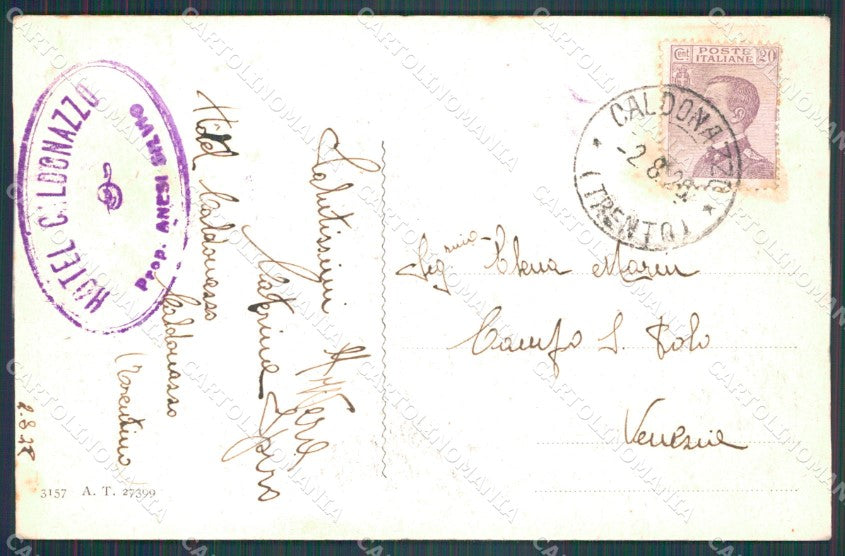 HOTEL CALDONAZZO
Prop. ANESI
Hôtel Caldonazzo
Caldonazzo
(Trentino)
2.8.28
Salutissimi
Caterina
3157 A. T. 27399
Cent. POSTE ITALIANE 20
CALDONAZZO
-2.8.28
(TRENTO)
Sig.nina Elena Marin
Campo S. Polo
Venezia
CARTOLINOMANIA